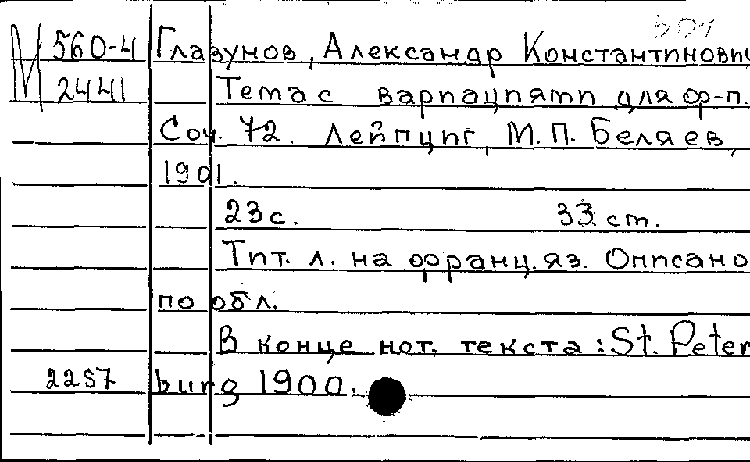 М 560-4 Глазунов, Александр Константинович
2441 Тема с вариациями для ф-п.
Соч. 72. Лейпциг, М.П. Беляев,
1901.
23 с. 33 ст.
Тит. л. на франц. яз. Описано
по обл.
В конце нот. текста: St. Peter
2257 burg 1900.